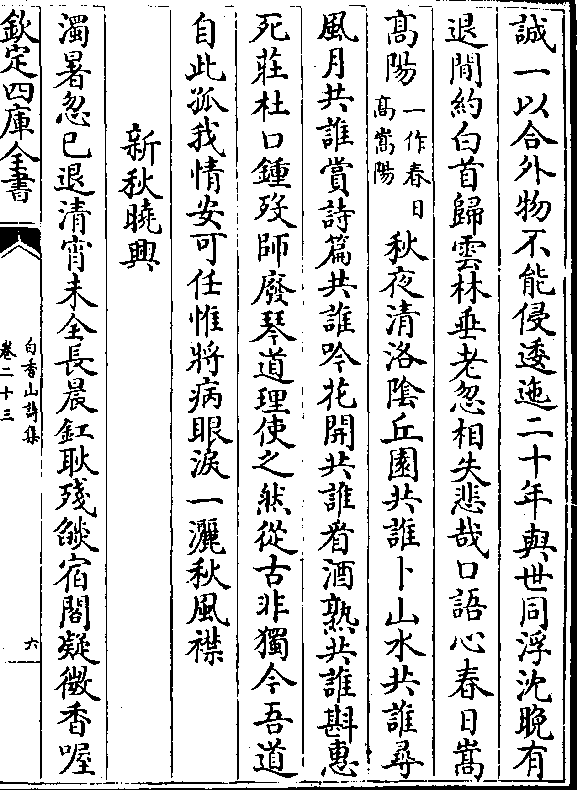 誠一以合外物不能侵逶迤二十年與世同浮沈晩有
退閒約白首歸雲林垂老忽相失悲哉口語心春日嵩
高陽一作春日高嵩陽秋夜清洛隂丘園共誰卜山水共誰尋
風月共誰賞詩篇共誰吟花開共誰看酒熟共誰斟惠
死莊杜口鍾歿師廢琴道理使之然從古非獨今吾道
自此孤我情安可任惟將病眼淚一灑秋風襟
新秋曉興
濁暑忽已退清宵未全長晨釭耿殘燄宿閤凝微香喔
欽定四庫全書
白香山詩集
卷二十三
六